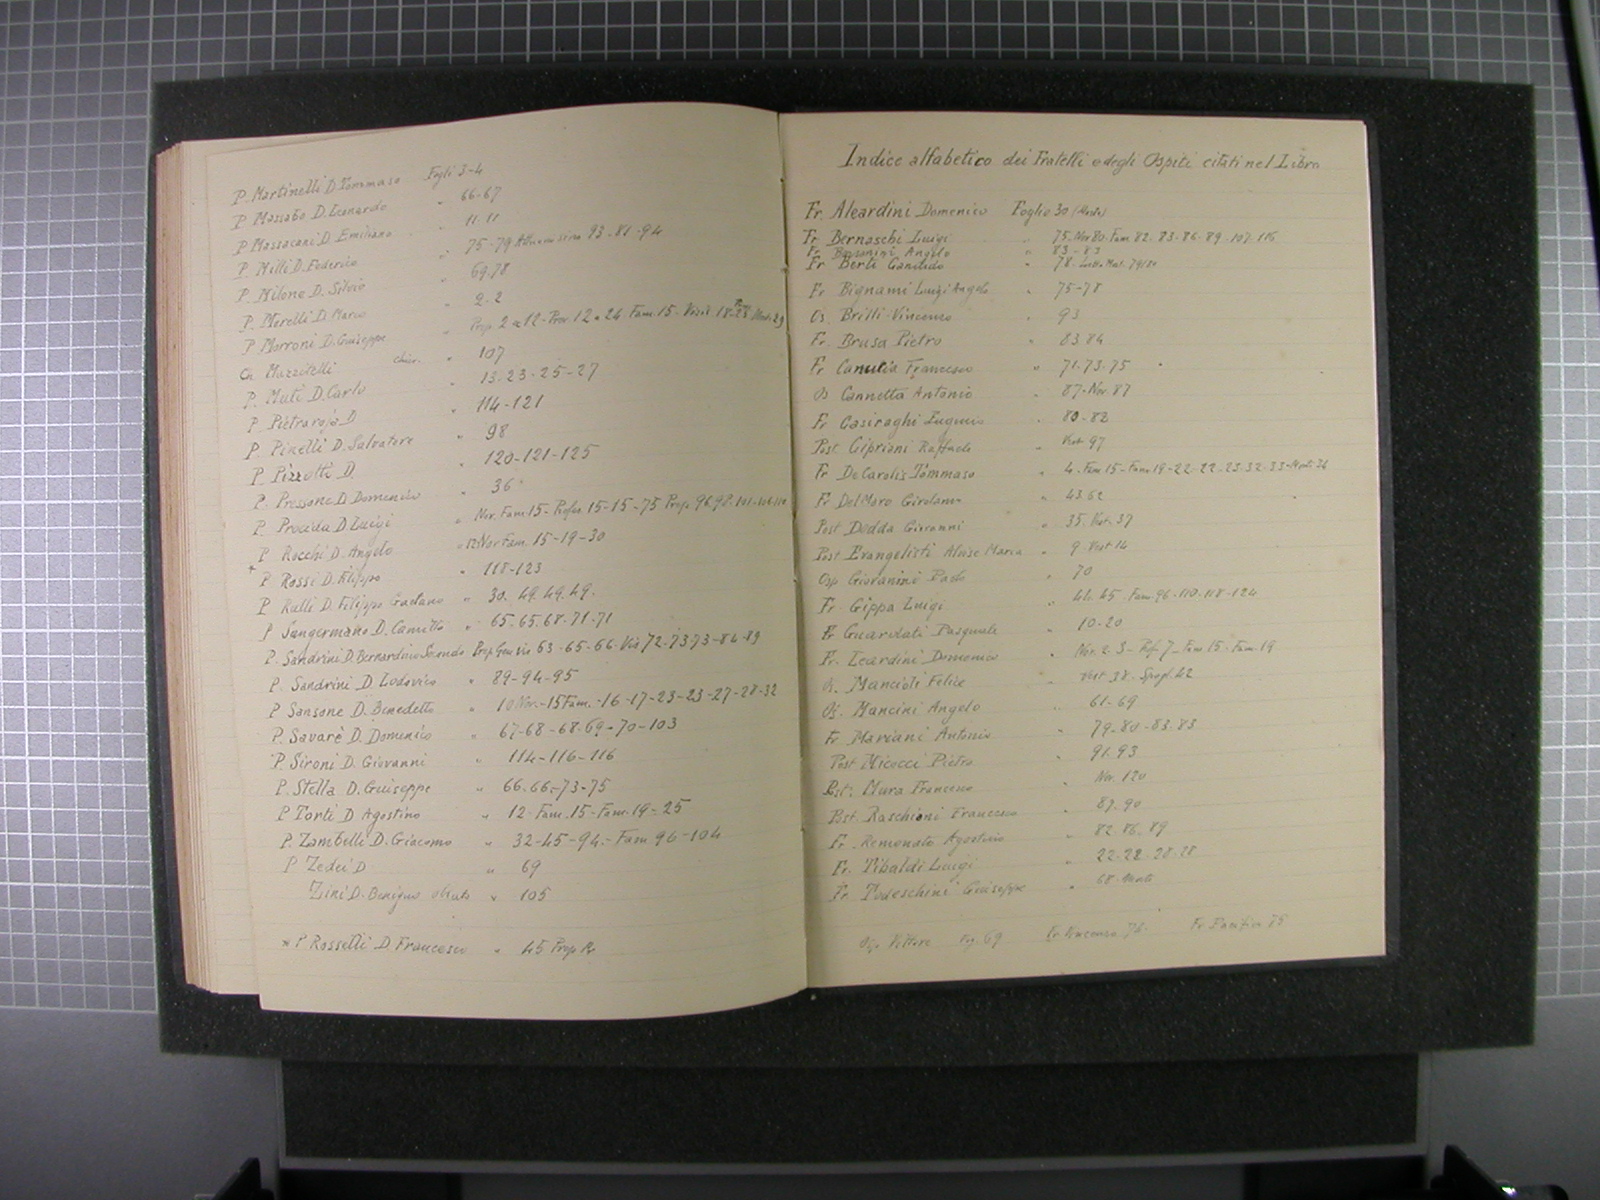 P. Martinelli D. Tommaso Fogli 3-4
P Massabo D. Leonardo " 66-67
P Massacani D. Emiliano " 11. 11
P Milli D. Federico " 75-79 93-81-94
P. Milone D. Silvio " 69.78
P. Morelli D. Marco " 2-2
P Morroni D. Giuseppe " Prop. 2 a 12-Prov. 12 a 24 Fam. 15-
Ch Mazzitelli chier. " 107
P. Muti D. Carlo " 13-23-25-27
P Pietraroja D " 114-121
P. Pinelli D. Salvatore " 98
P. Pizzotti D. " 120-121-125
P. Pressone D. Domenico " 36
P. Procida D. Luigi " Nov. Fam. 15- 15-15-75 Prop. 96.98-101-
P Rocchi D. Angelo " Nov Fam. 15-19-30
* P Rossi D. Filippo " 118-123
P Rulli D. Filippo Gaetano " 30. 49. 49. 49.
P Sangermano D. Camillo " 65. 65. 68-71-71
P. Sandrini D. Bernardino Secondo Prop Gen vis 63-65-66. Vis 72-73 73-84-89
P. Sandrini D Lodovico " 89-94-95
P Sansone D. Benedetto " 10 Nov.-15 Fam.-16-17-23-23-27-28-32
P. Savarè D. Domenico " 67-68-68-69-70-103
P. Sironi D. Giovanni " 114-116-116
P. Stella D. Guiseppe " 66. 66-73-75
P Torti D Agostino " 12 Fam. 15-Fam. 19-25
P. Zambelli D. Giacomo " 32-45-94-Fam 96-104
P Zedei D " 69
Zini D. Benigno " 105
* P Rosselli D Francesco " 45 Prop
Indice alfabetico dei Fratelli e degli Ospiti citati nel Libro
Fr. Aleardini Domenico Foglio 30 (Morte)
Fr Bernaschi Luigi " 75. Nov 80. Fam 82. 83-86-89-107-116
Fr Angelo " 83-83
Fr Berti Candido " 78-
Fr Bignami Luigi Angelo " 75-78
Os. Brilli Vincenzo " 93
Fr. Brusa Pietro " 83. 84
Fr Francesco " 71. 73. 75
Os Cannetta Antonio " 87-Nov. 87
Fr Casiraghi Eugenio " 80-82
Post. Cipriani Raffaele " Vest 97
Fr DeCarolis Tommaso " 4. Fam 15-Fam 19-22-22-23. 32-33-
Fr DelMoro Girolamo " 43. 62
Post Dodda Giovanni " 35. Vest. 37
Post Evangelisti Aloise Maria " 9-Vest 14
Osp Giovanini Paolo " 70
Fr. Gippa Luigi " 44. 45. Fam. 96-110-118-124
Fr Guardati Pasquale " 10-20
Fr. Leardini Domenico " Nov. 2. 3-Prof. 7-Fam. 15-Fam. 19
Os. Mancioli Felice " Vest 38- Spogl. 42
Os. Mancini Angelo " 61-69
Fr Mariani Antonio " 79-80-83. 83
Post Micocci Pietro " 91. 93
Post: Mura Francesco " Nov. 120
Post. Raschioni Francesco " 87. 90
Fr. Remonato Agostino " 82. 86. 89
Fr. Tibaldi Luigi " 22-22-28-28
Fr. Todeschini Guiseppe " 68-Morte
Vittore Fog. 69 Fr Vincenzo 76 Fr. Pacifico 75